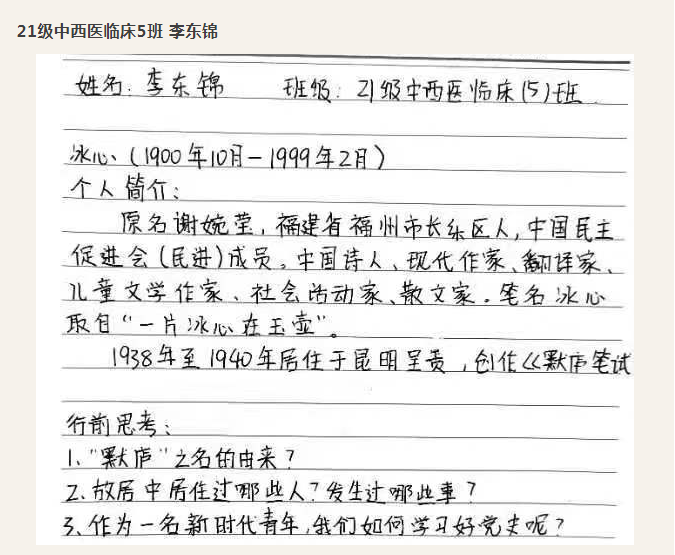 21级中西医临床5班 李东锦
姓名: 李东锦 班级: 21级中西医临床(5)班
冰心、(1900年10月-1999年2月)
个人简介:
原名谢婉莹,福建省福州市长乐区人,中国民主
促进会(民进)成员。中国诗人、现代作家、翻译家、
儿童文学作家、社会活动家、散文家。笔名冰心
取自“一片冰心在玉壶”。
1938年至1940年居住于昆明呈贡,创作《默庐笔试
行前思考:
1、“默庐”之名的由来?
2、故居中居住过哪些人?发生过哪些事?
3、作为一名新时代青年,我们如何学习好党史呢?